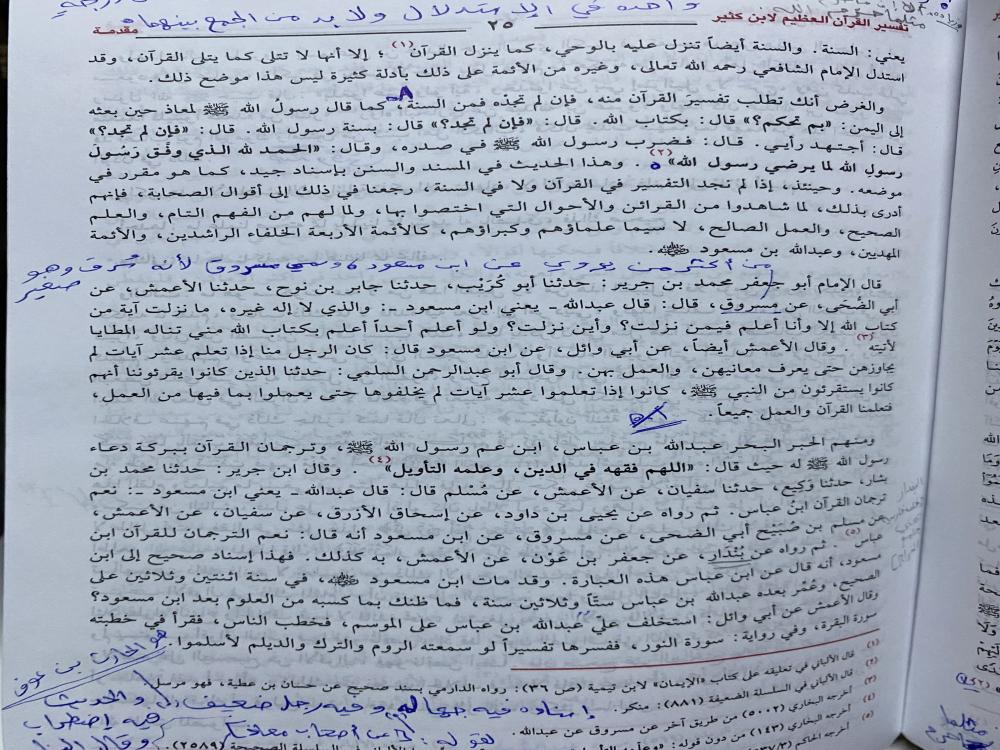 واحدة في الاستدلال ولا بد من الجمع بينهما
تفسير القرآن العظيم لابن كثير
٢٥
مقدمة
يعني: السنة. والسنة أيضاً تنزل عليه بالوحي، كما ينزل القرآن(١)؛ إلا أنها لا تتلى كما يتلى القرآن، وقد
استدل الإمام الشافعي رحمه الله تعالى، وغيره من الأئمة على ذلك بأدلة كثيرة ليس هذا موضع ذلك.
والغرض أنك تطلب تفسيرَ القرآن منه، فإن لم تجدْه فمن السنة، كما قال رسولُ الله ﷺ لمعاذ حين بعثه
إلى اليمن: «بم تحكم؟» قال: بكتاب الله. قال: «فإن لم تجد؟» قال: بسنة رسول الله. قال: «فإن لم تجد؟»
قال: أجتهد رأيي. قال: فضرب رسول الله ﷺ في صدره، وقال: «الحمد لله الذي وفَّق رَسُولَ
رسولِ الله لما يرضي رسول الله»(٢). وهذا الحديث في المسند والسنن بإسناد جيد، كما هو مقرر في
موضعه. وحينئذ، إذا لم نجد التفسير في القرآن ولا في السنة، رجعنا في ذلك إلى أقوال الصحابة، فإنهم
أدرى بذلك، لما شاهدوا من القرائن والأحوال التي اختصوا بها، ولما لهم من الفهم التام، والعلم
الصحيح، والعمل الصالح، لا سيما علماؤهم وكبراؤهم، كالأئمة الأربعة الخلفاء الراشدين، والأئمة
المهديين، وعبدالله بن مسعود ﷺ.
من أكثر من يروي عن ابن مسعود، وسمي مسروق لأنه سُرق وهو
صغير
قال الإمام أبو جعفر محمد بن جرير: حدثنا أبو كُرَيْب، حدثنا جابر بن نوح، حدثنا الأعمش، عن
أبي الضُّحَى، عن مسروق، قال: قال عبدالله ـ يعني ابن مسعود ـ: والذي لا إله غيره، ما نزلت آية من
كتاب الله إلا وأنا أعلم فيمن نزلت؟ وأين نزلت؟ ولو أعلم أحداً أعلم بكتاب الله مني تناله المطايا
لأتيته(٣). وقال الأعمش أيضاً، عن أبي وائل، عن ابن مسعود قال: كان الرجل منا إذا تعلم عشر آيات لم
يجاوزهن حتى يعرف معانيهن، والعمل بهن. وقال أبو عبدالرحمن السلمي: حدثنا الذين كانوا يقرئوننا أنهم
كانوا يستقرئون من النبي ﷺ، كانوا إذا تعلموا عشر آيات لم يخلفوها حتى يعملوا بما فيها من العمل،
فتعلمنا القرآن والعمل جميعاً.
ومنهم الحبر البحر عبدالله بن عباس، ابن عم رسول الله ﷺ، وترجمان القرآن ببركة دعاء
رسول الله ﷺ له حيث قال: «اللهم فقهه في الدين، وعلمه التأويل»(٤). وقال ابن جرير: حدثنا محمد بن
بشار، حدثنا وَكِيع، حدثنا سفيان، عن الأعمش، عن مُسْلم قال: قال عبدالله ـ يعني ابن مسعود ـ: نعم
ترجمان القرآن ابنُ عباس. ثم رواه عن يحيى بن داود، عن إسحاق الأزرق، عن سفيان، عن الأعمش،
عن مسلم بن صُبَيْح أبي الضحى، عن مسروق، عن ابن مسعود أنه قال: نعم الترجمان للقرآن ابن
عباس(٥). ثم رواه عن بُنْدَار، عن جعفر بن عَوْن، عن الأعمش، به كذلك. فهذا إسناد صحيح إلى ابن
مسعود، أنه قال عن ابن عباس هذه العبارة. وقد مات ابن مسعود ﷺ، في سنة اثنتين وثلاثين على
الصحيح، وعُمِّر بعده عبدالله بن عباس ستّاً وثلاثين سنة، فما ظنك بما كسبه من العلوم بعد ابن مسعود؟
وقال الأعمش عن أبي وائل: استخلف عليّ عبدالله بن عباس على الموسم، فخطب الناس، فقرأ في خطبته
سورة البقرة، وفي رواية: سورة النور، ففسرها تفسيراً لو سمعته الروم والترك والديلم لأسلموا.
هو الحارث بن عوف
(١) قال الألباني في تعليقه على كتاب «الإيمان» لابن تيمية (ص ٣٦): رواه الدارمي بسند صحيح عن حسان بن عطية، فهو مرسل
(٢) قال الألباني في السلسلة الضعيفة (٨٨١): منكر.
إسناده فيه جهالة وفيه رجل ضعيف والحديث
فيه اضطراب
(٣) أخرجه البخاري (٥٠٠٢) من طريق آخر عن مسروق عن عبدالله.
(٤) أخرجه البخاري (١٤٣) من دون قوله:
لقوله: عن أصحاب معاذ
(٥) أخرجه الحاكم
الألباني في السلسلة الصحيحة (٢٥٨٩).